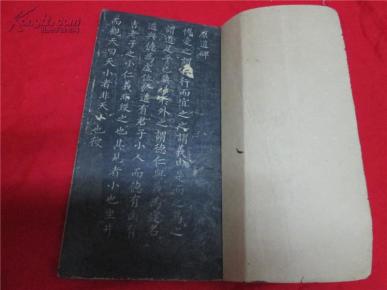 原道碑
愽愛之謂行而宜之之謂義由是而之焉之
謂道足乎己無於外之謂德仁與義為定名
道與德為虛位故道有君子小人而德有凶有
吉老子之小仁義非毀之也其見者小也坐井
而觀天曰天小者非天小也彼